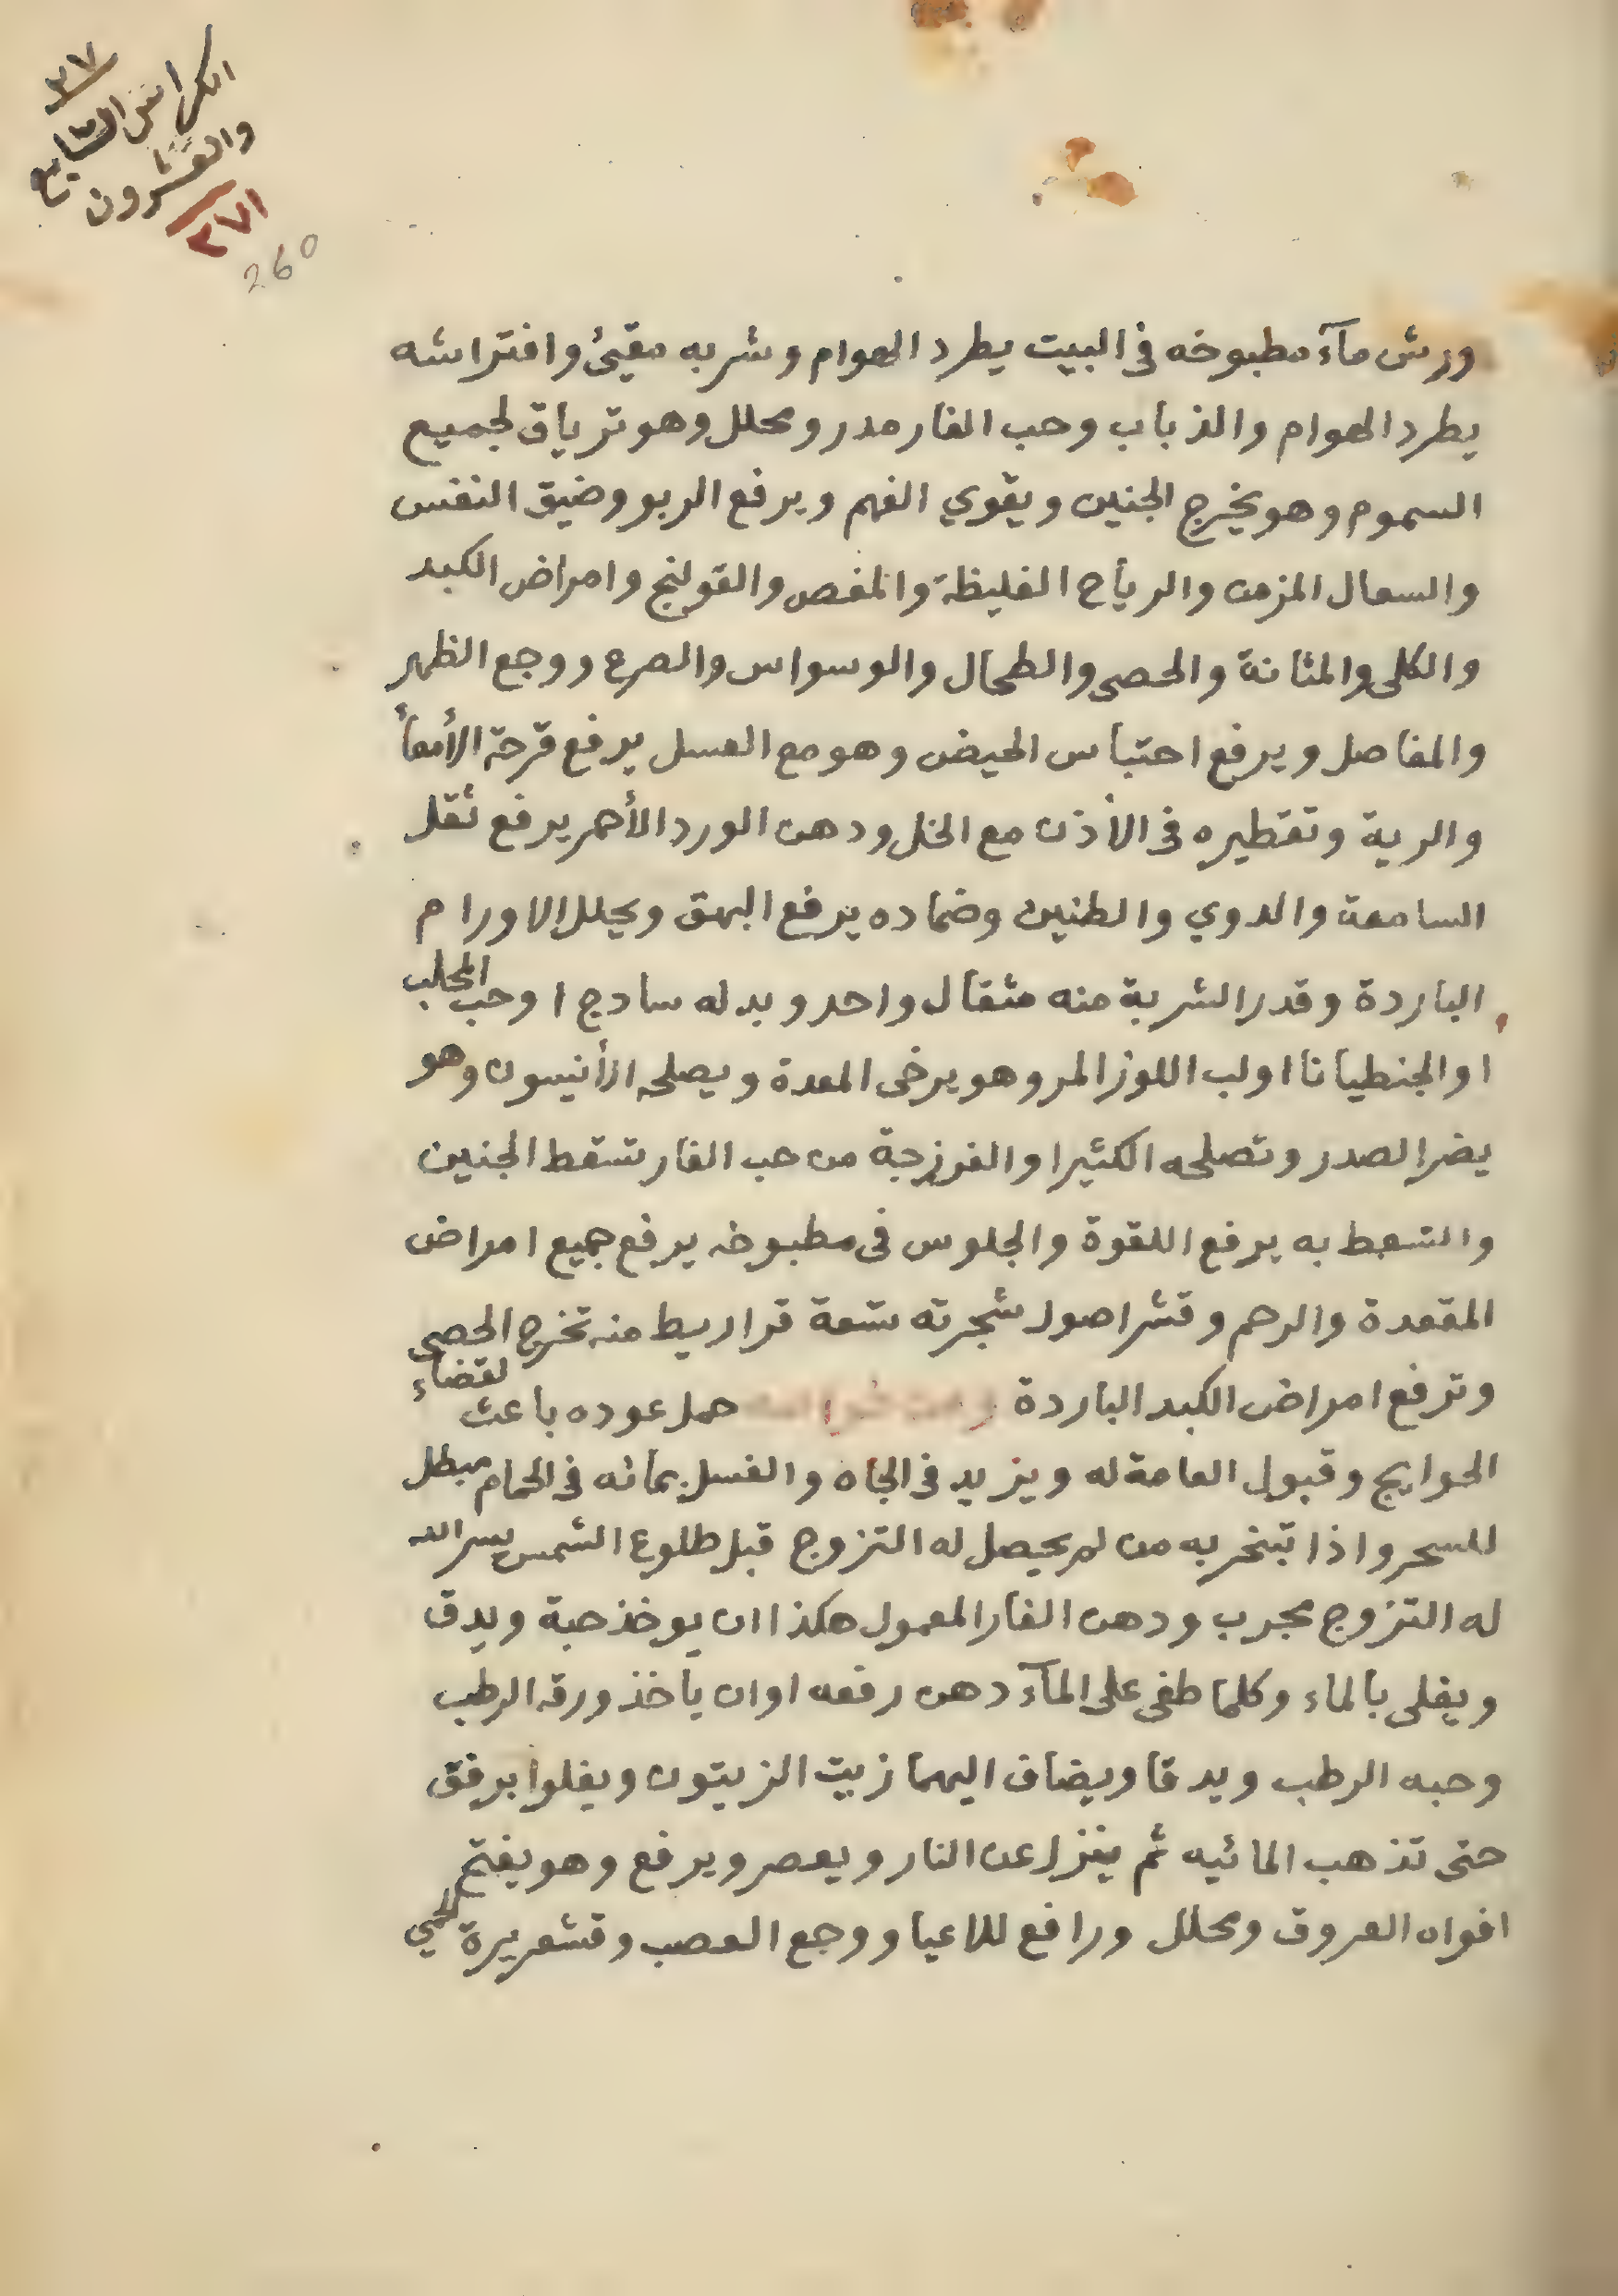 ٢٧
الكراس السابع
والعشرون
٢٧١
260
ورش مآء مطبوخه في البيت يطرد الهوام وشربه مقيئ وافتراشه
يطرد الهوام والذباب وحب الغار مدر ومحلل وهو ترياق لجميع
السموم وهو يخرج الجنين ويقوي الفهم ويرفع الربو وضيق النفس
والسعال المزمن والرياح الغليظة والمغص والقولنج وامراض الكبد
والكلى والمثانة والحصى والطحال والوسواس والصرع ووجع الظهر
والمفاصل ويرفع احتباس الحيض وهو مع العسل يرفع قرحة الأمعأ
والرية وتقطيره في الأذن مع الخل ودهن الورد الأحمر يرفع ثقل
السامعة والدوي والطنين وضماده يرفع البهق ويحلل الاورام
الباردة وقدر الشربة منه مثقال واحد وبدله سادج اوحب المحلب
او الجنطيانا اولب اللوز المر وهو يرخى المعدة ويصلحه الأنيسون وهو
يضر الصدر وتصلحه الكثيرا والفرزجة من حب الغار تسقط الجنين
والتسعط به يرفع اللقوة والجلوس فى مطبوخه يرفع جميع امراض
المقعدة والرحم وقشر اصول شجرته تسعة قراريط منه تخرج الحصى
وترفع امراض الكبد الباردة حمل عوده باعث لقضاء
الحوايج وقبول العامة له ويزيد فى الجاه والغسل بمائه فى الحمام مبطل
للسحر واذا تبخر به من لم يحصل له التزوج قبل طلوع الشمس يسر الله
له التزوج مجرب ودهن الغار المعمول هكذا ان يوخذ حبة ويدق
ويغلى بالماء وكلما طفى على المآء دهن رفعه او ان ياخذ ورقه الرطب
وحبه الرطب ويدقا ويضاف اليهما زيت الزيتون ويغلوا برفق
حتى تذهب المائيه ثم ينزل عن النار ويعصر ويرفع وهو يفتح
افواه العروق ومحلل ورافع للاعيا ووجع العصب وقشعريرة الحمي